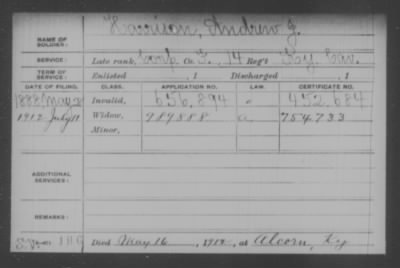 NAME OF SOLDIER: Harrison, Andrew J.
SERVICE: Late rank, Corp Co. F, 14 Reg't Ky. Cav.
TERM OF SERVICE: Enlisted , 1 Discharged , 1
DATE OF FILING. CLASS. APPLICATION NO. LAW. CERTIFICATE NO.
1888 May Invalid, 656,894 452,684
1912 July 11 Widow, 989888 a 754,733
Minor,
ADDITIONAL SERVICES:
REMARKS:
Died May 16, 1912, at Alcorn, Ky